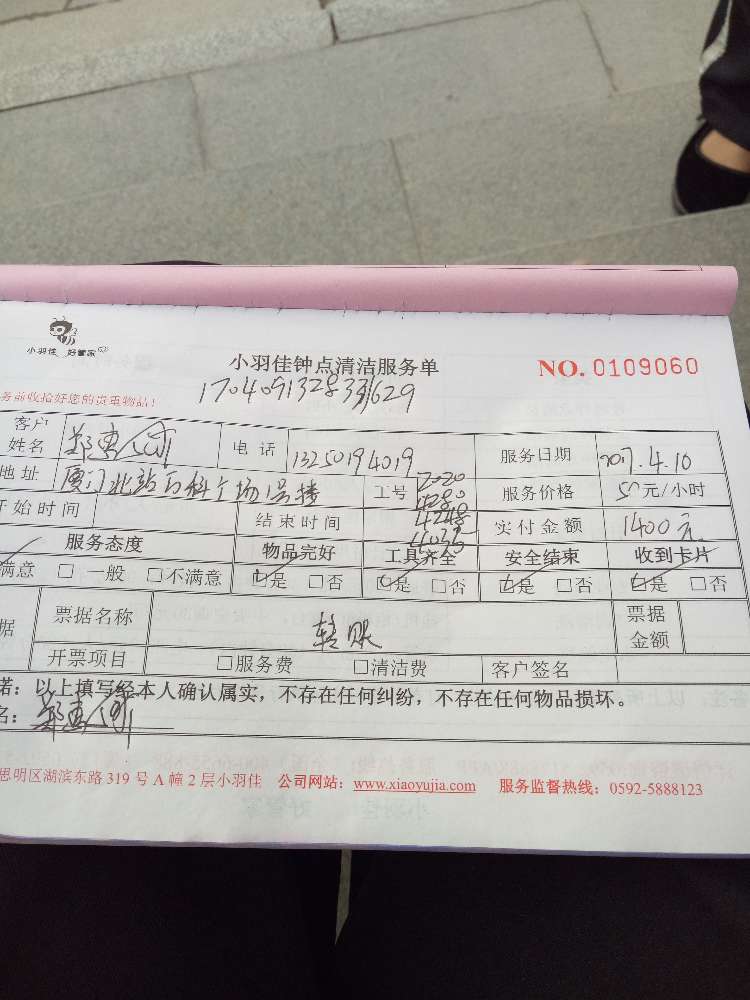 小羽佳 好管家
小羽佳钟点清洁服务单
NO. 0109060
务前收拾好您的贵重物品!
客户姓名 郑惠 电话 13250194019 服务日期 2017.4.10
地址 厦门北站百科广场 号楼 工号 2020 4280 4248 服务价格 50元/小时
开始时间 结束时间 实付金额 1400元
服务态度 物品完好 工具齐全 安全结束 收到卡片
满意 □一般 □不满意 □是 □否 □是 □否 □是 □否 □是 □否
据 票据名称 转账 票据金额
开票项目 □服务费 □清洁费 客户签名
诺:以上填写经本人确认属实,不存在任何纠纷,不存在任何物品损坏。
名:郑惠
思明区湖滨东路 319 号 A 幢 2 层小羽佳 公司网站:www.xiaoyujia.com 服务监督热线:0592-5888123